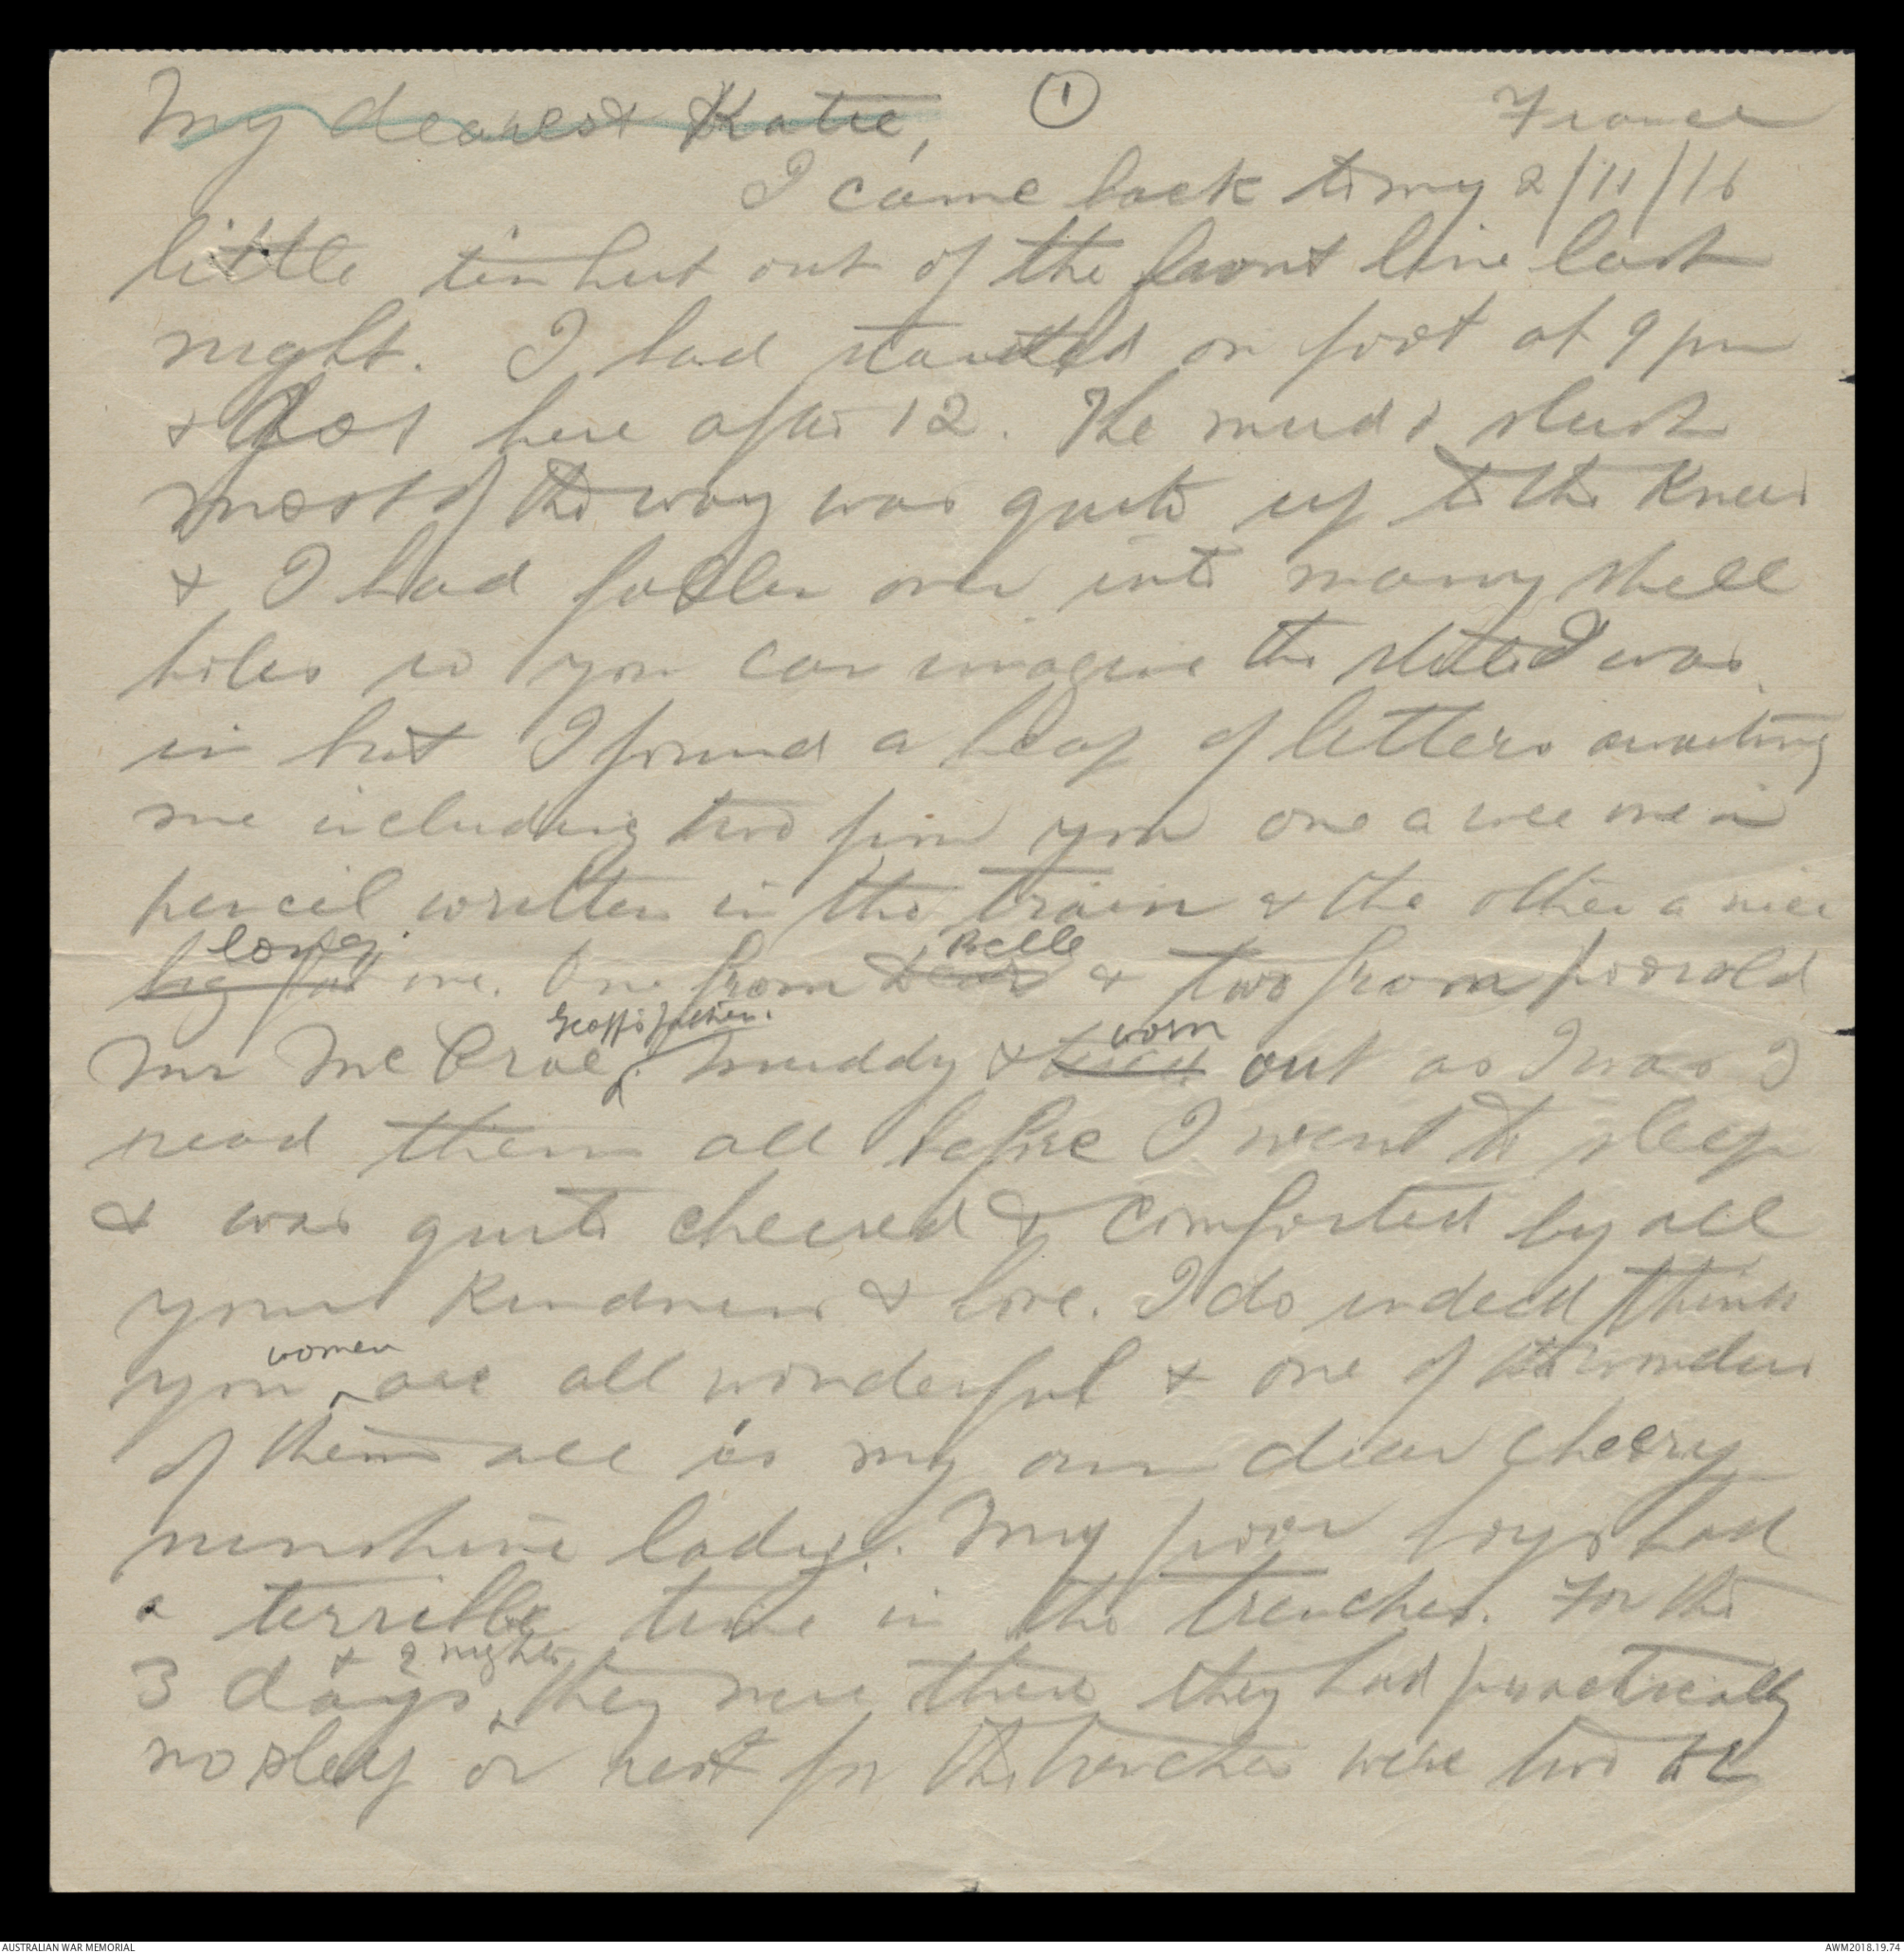 My dearest Katie, ① France
I came back to my 2/11/16
little tin hut out of the front line last
night. I had started on foot at 9 pm
& got here after 12. The mud & slush
most of the way was quite up to the knees
& I had fallen over into many shell
holes so you can imagine the state I was
in but I found a heap of letters awaiting
me including two from you one a wee one in
pencil written in the train & the other a nice
long Belle
big fat one. One from & two from poor old
Geoff's father. worn
Mr McCrae. Muddy & tired out as I was I
read them all before I went to sleep
& was quite cheered & comforted by all
your kindness & love. I do indeed think
women
you are all wonderful & one of the wonders
of them all is my own dear cheery
sunshine lady. My poor boys had
a terrible time in the trenches. For the
& 2 nights
3 days they were there they had practically
no sleep or rest for the trenches were two &
AUSTRALIAN WAR MEMORIAL AWM2018.19.74